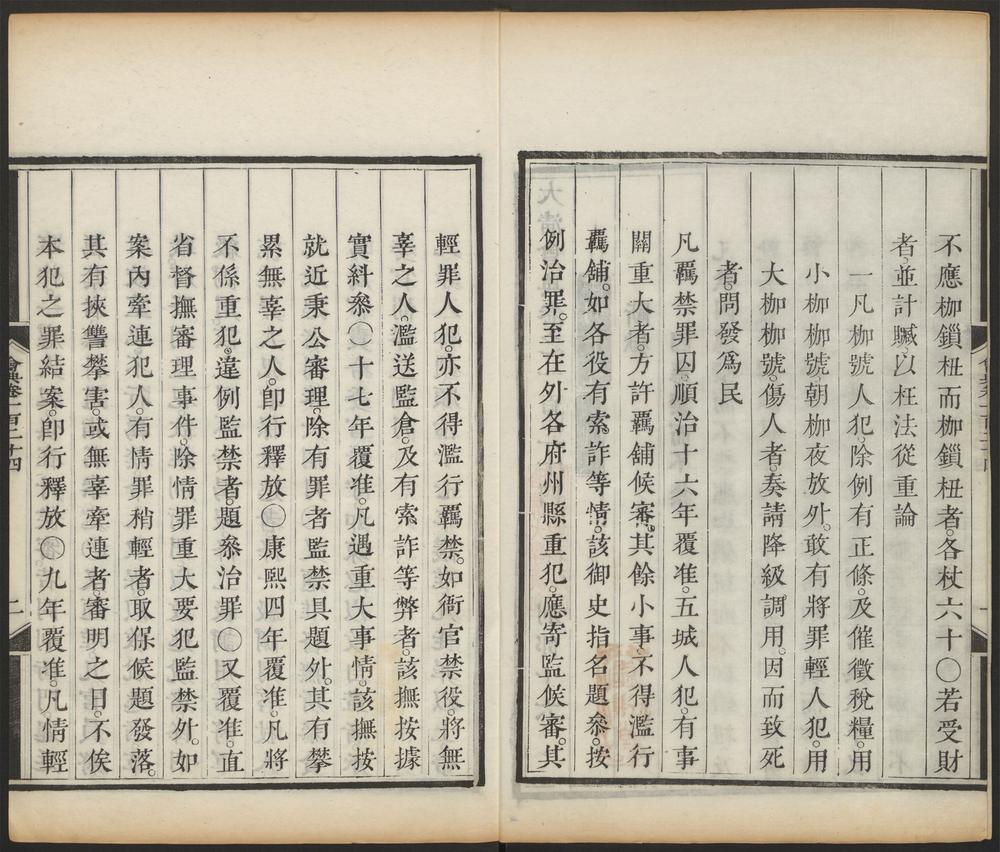 不應枷鎖杻而枷鎖杻者。各杖六十〇若受財
者。並計贓。以枉法從重論
一凡枷號人犯。除例有正條。及催徵稅糧。用
小枷枷號。朝枷夜放外。敢有將罪輕人犯。用
大枷枷號。傷人者。奏請降級調用。因而致死
者。問發爲民
凡羈禁罪囚。順治十六年覆准。五城人犯。有事
關重大者。方許羈舖候審。其餘小事。不得濫行
羈舖。如各役有索詐等情。該御史指名題參。按
例治罪。至在外各府州縣重犯。應寄監候審。其
輕罪人犯。亦不得濫行羈禁。如衙官禁役。將無
辜之人。濫送監倉。及有索詐等弊者。該撫按據
實糾參〇十七年覆准。凡遇重大事情。該撫按
就近秉公審理。除有罪者監禁具題外。其有攀
累無辜之人。卽行釋放〇康熙四年覆准。凡將
不係重犯。違例監禁者。題參治罪〇又覆准。直
省督撫審理事件。除情罪重大要犯監禁外。如
案內牽連犯人。有情罪稍輕者。取保候題發落。
其有挾讐攀害。或無辜牽連者。審明之日。不俟
本犯之罪結案。卽行釋放〇九年覆准。凡情輕
會典卷一百二十四
二